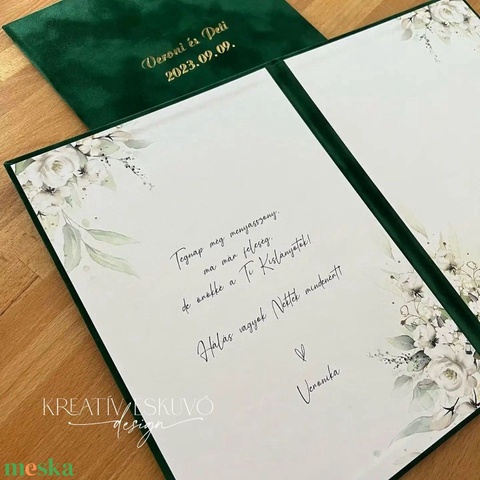 Veroni és Peti
2023.09.09.
Tegnap még menyasszony,
ma már feleség,
de örökké a Ti Kislányotok!
Hálás vagyok Nektek mindenért!
Veronika
KREATÍV ESKÜVŐ
design
meska